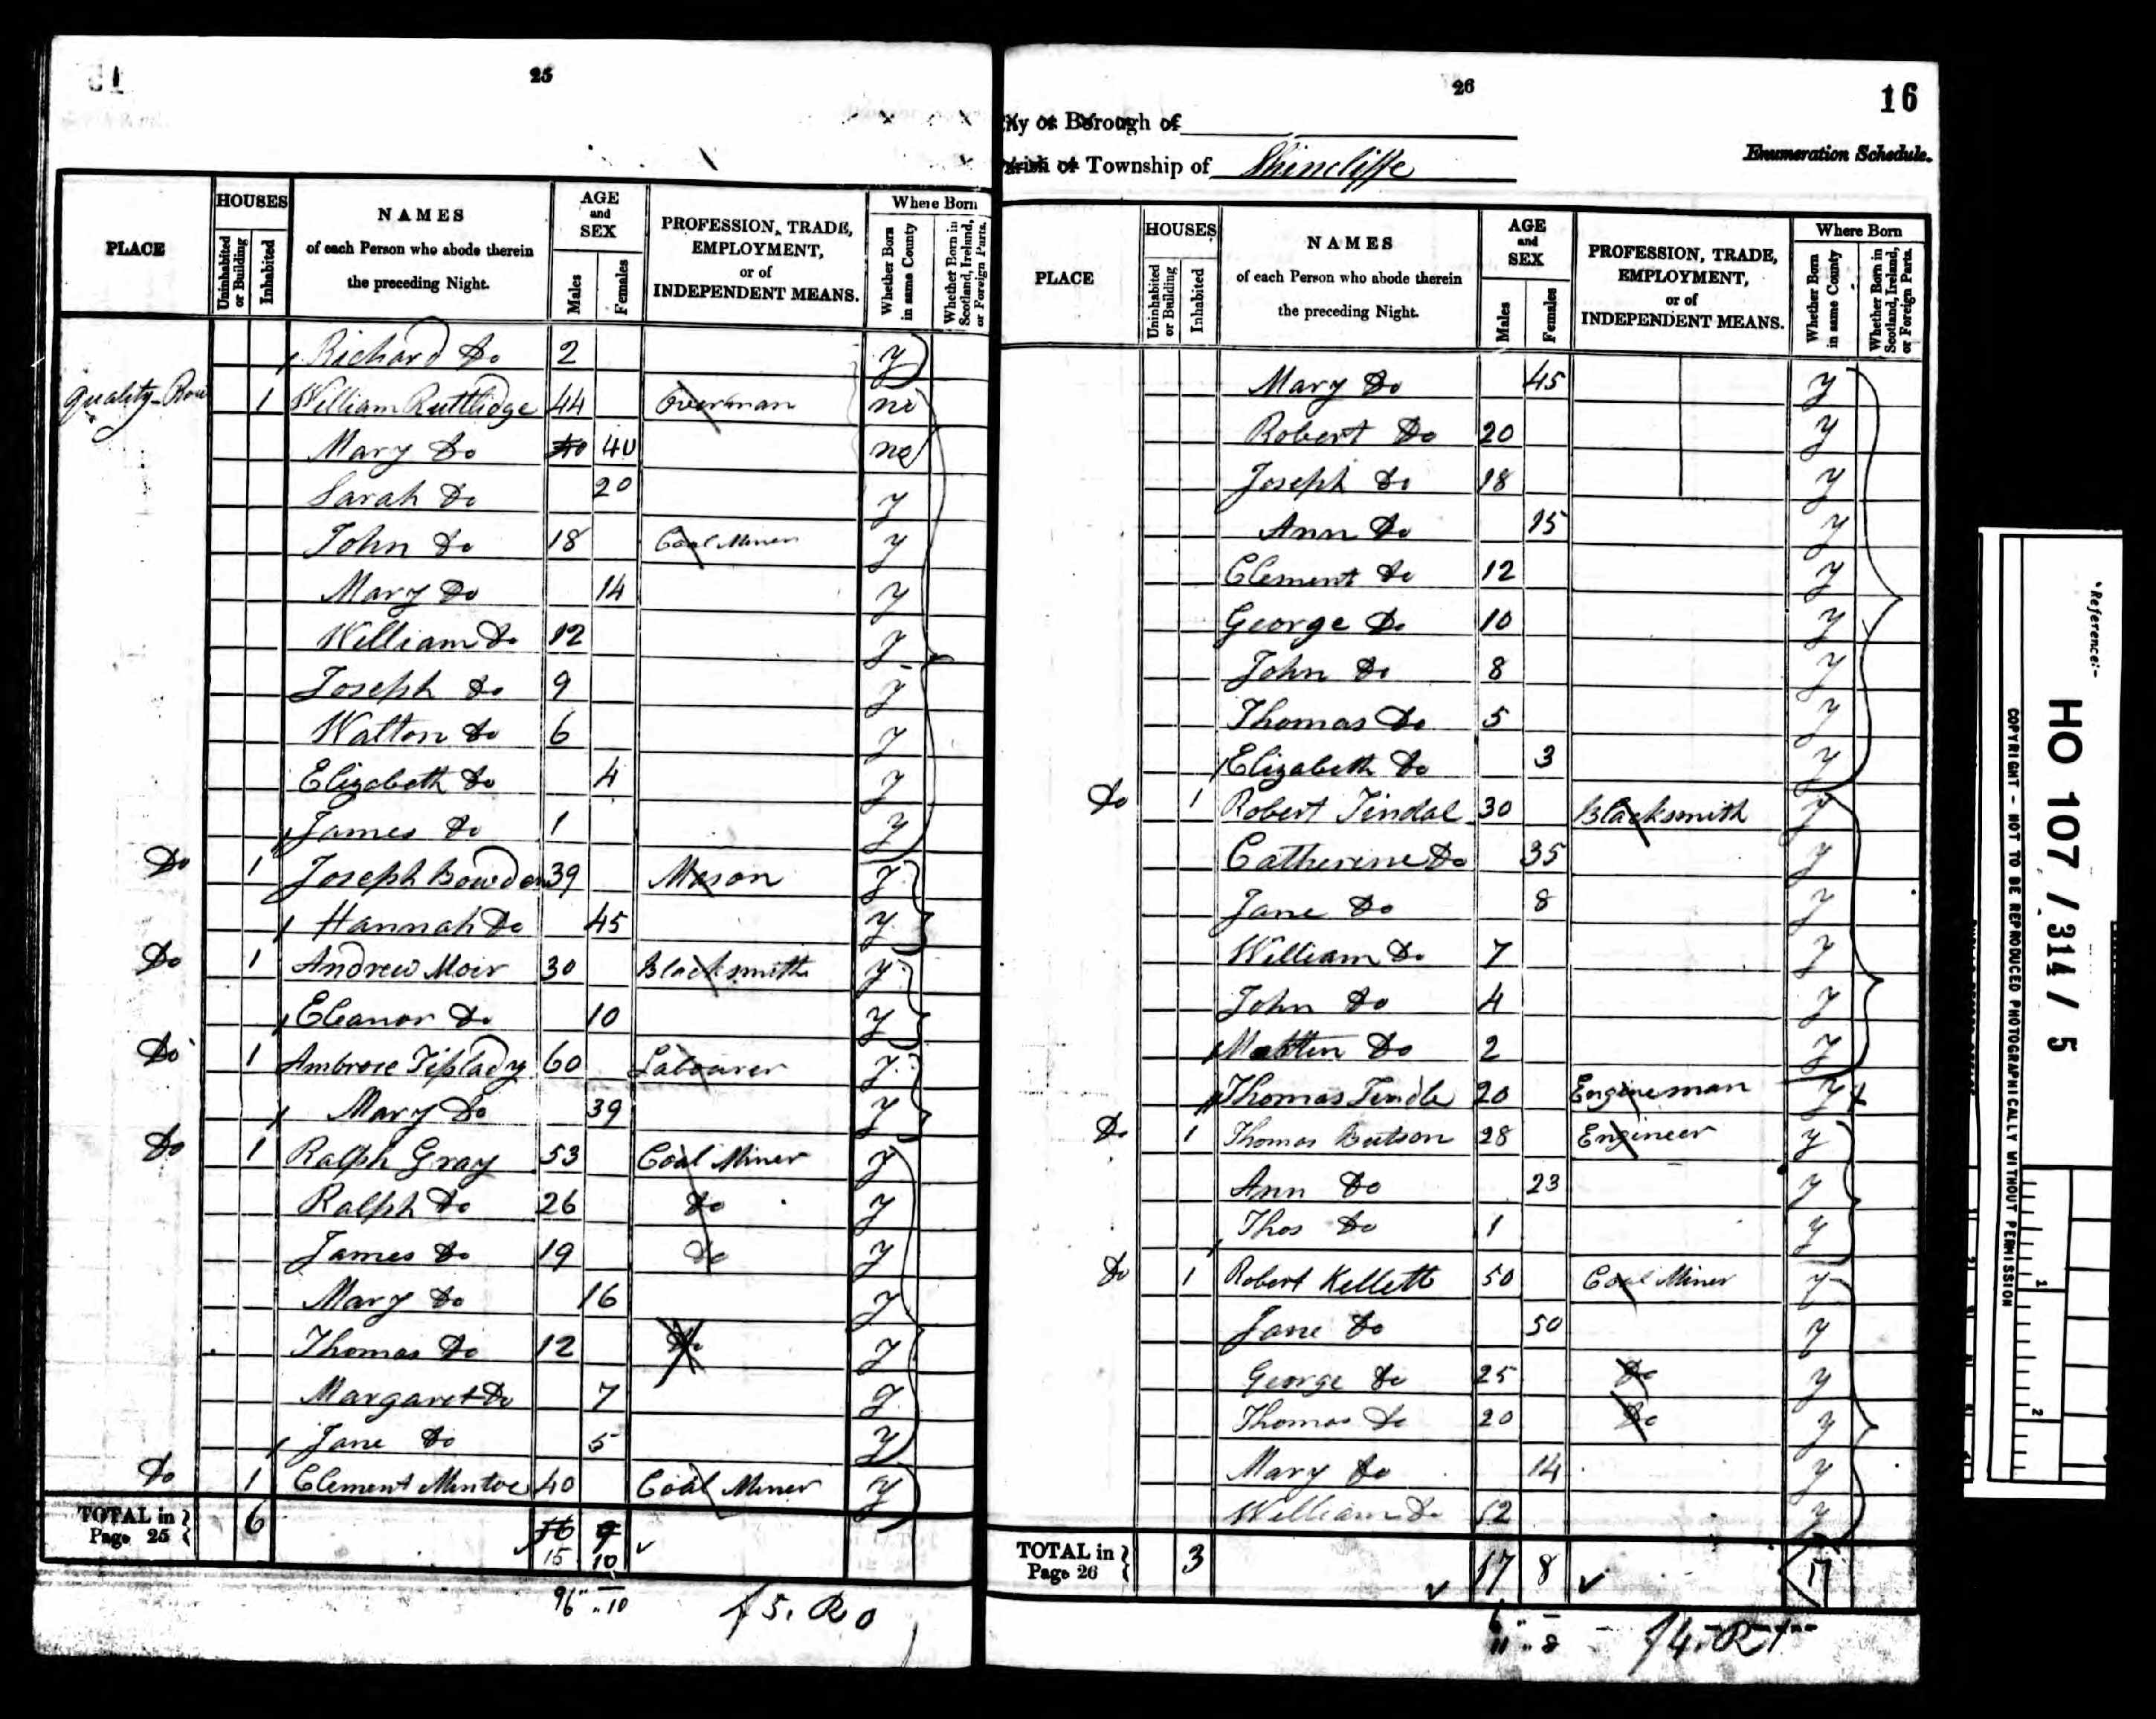 25
PLACE
HOUSES
Uninhabited or Building
Inhabited
NAMES
of each Person who abode therein
the preceding Night.
AGE
and
SEX
Males
Females
PROFESSION, TRADE,
EMPLOYMENT,
or of
INDEPENDENT MEANS.
Where Born
Whether Born in same County
Whether Born in Scotland, Ireland, or Foreign Parts.
Richard Do 2 y
Quality Row 1 William Ruttlidge 44 Overman no
Mary Do 40 no
Sarah Do 20 y
John Do 18 Coal Miner y
Mary Do 14 y
William Do 12 y
Joseph Do 9 y
Walton Do 6 y
Elizabeth Do 4 y
James Do 1 y
Do 1 Joseph Bowden 39 Mason y
Hannah Do 45 y
Do 1 Andrew Moir 30 Blacksmith y
Eleanor Do 10 y
Do 1 Ambrose Tiplady 60 Labourer y
Mary Do 39 y
Do 1 Ralph Gray 53 Coal Miner y
Ralph Do 26 Do y
James Do 19 Do y
Mary Do 16 y
Thomas Do 12 Do y
Margaret Do 7 y
Jane Do 5 y
Do 1 Clement Mintoe 40 Coal Miner y
TOTAL in Page 25 6 16 9
15 10
26
16
City or Borough of
Parish or Township of Shincliffe
Enumeration Schedule.
PLACE
HOUSES
Uninhabited or Building
Inhabited
NAMES
of each Person who abode therein
the preceding Night.
AGE
and
SEX
Males
Females
PROFESSION, TRADE,
EMPLOYMENT,
or of
INDEPENDENT MEANS.
Where Born
Whether Born in same County
Whether Born in Scotland, Ireland, or Foreign Parts.
Mary Do 45 y
Robert Do 20 y
Joseph Do 18 y
Ann Do 15 y
Clement Do 12 y
George Do 10 y
John Do 8 y
Thomas Do 5 y
Elizabeth Do 3 y
Do 1 Robert Tindal 30 Blacksmith y
Catherine Do 35 y
Jane Do 8 y
William Do 7 y
John Do 4 y
Do 2 y
Thomas Tindle 20 Engineman y
Do 1 Thomas Batson 28 Engineer y
Ann Do 23 y
Thos Do 1 y
Do 1 Robert Kellett 50 Coal Miner y
Jane Do 50 y
George Do 25 Do y
Thomas Do 20 Do y
Mary Do 14 y
William Do 12 y
TOTAL in Page 26 3 17 8 17
11 8
Reference:-
HO 107 / 314 / 5
COPYRIGHT - NOT TO BE REPRODUCED PHOTOGRAPHICALLY WITHOUT PERMISSION
1
2